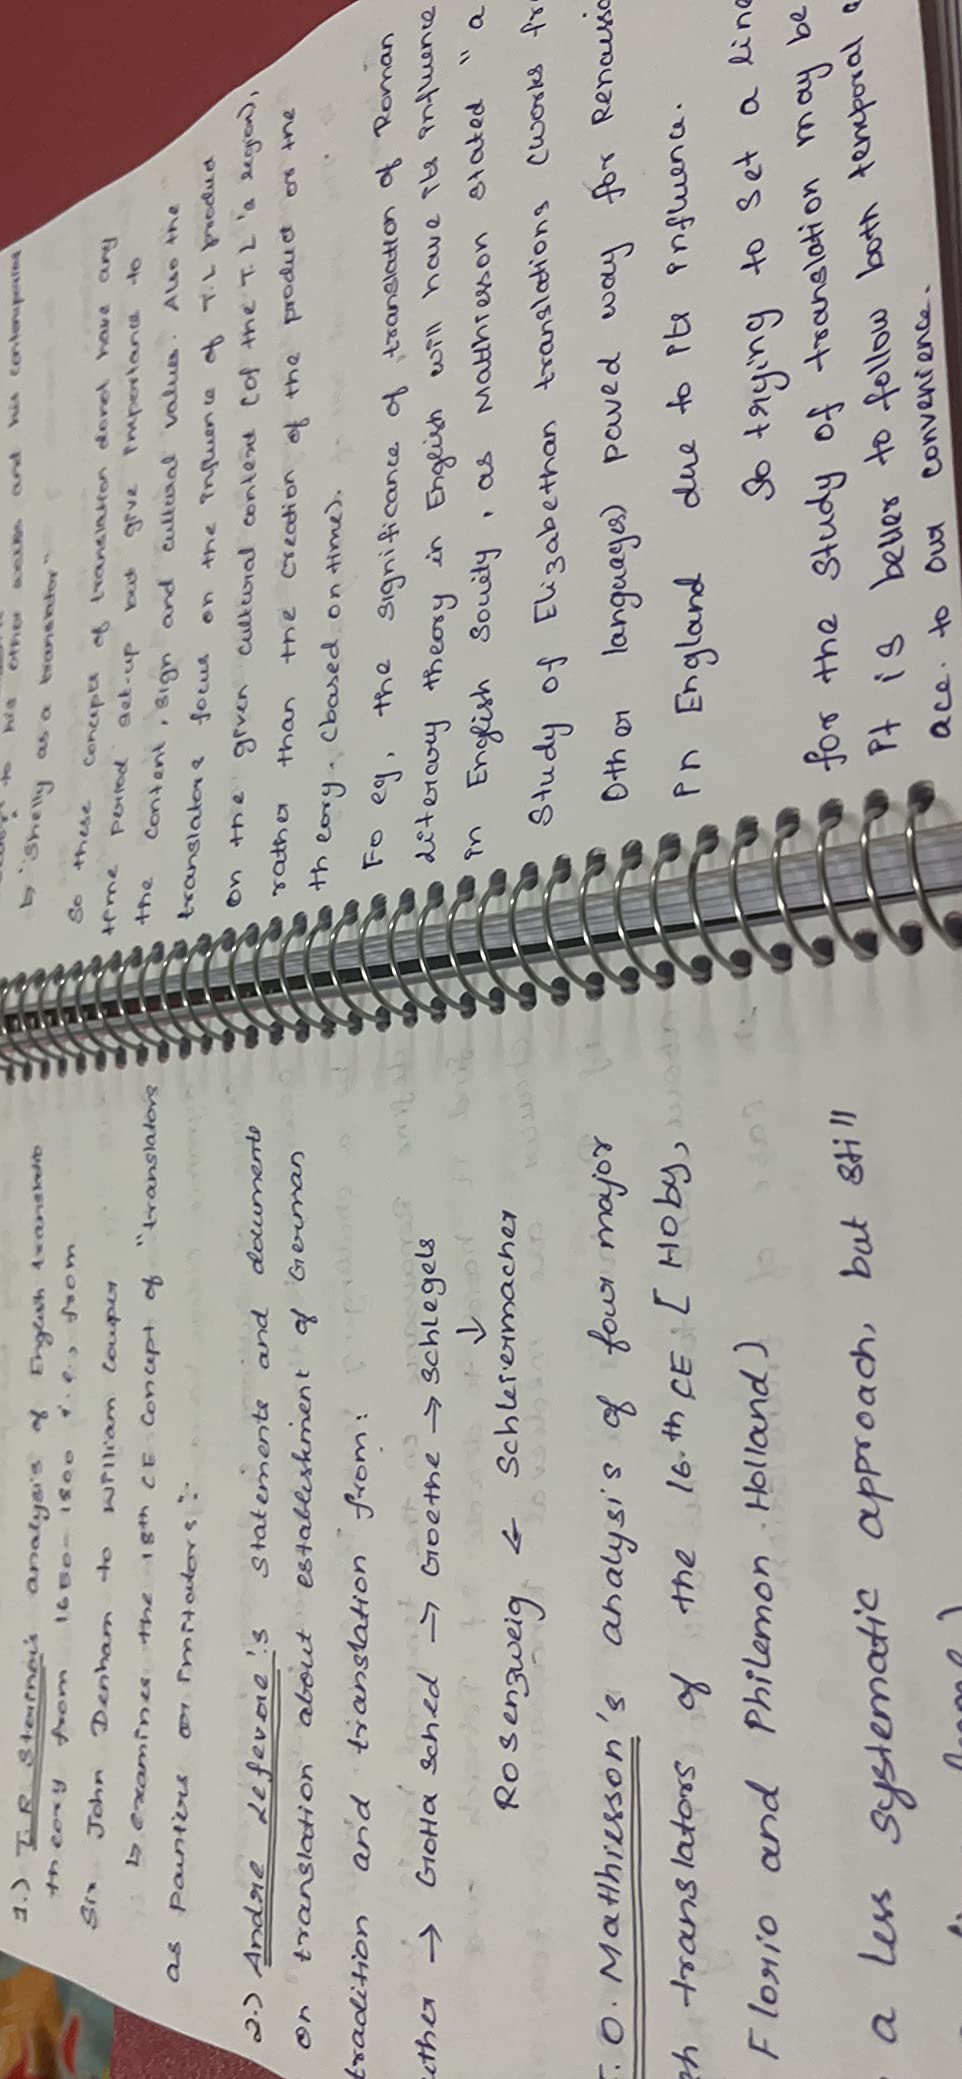 1.) T.R Steiner's analysis of English translation
theory from 1650-1800 i.e., from
Sir John Denham to William Cowper
↳ examines the 18th CE concept of "translators
as painters or imitators".
2.) Andre Lefevere's statements and documents
on translation about establishment of German
tradition and translation from:
uther → Gotta sched → Goethe → schlegels
↓
Rosenzweig ← Schleiermacher
F.O. Matthiesson's analysis of four major
sh translators of the 16.th CE [Hoby,
Florio and Philemon Holland)
a less systematic approach, but still
to his other works and his contemporaries
↳ "Shelly as a translator"
So these concepts of translation donot have any
time period set-up but give importance to
the content, sign and cultural values. Also the
translators focus on the influence of T.L product
on the given cultural context (of the T.L's region),
rather than the creation of the product or the
theory. (based on time).
Fo eg, the significance of translation of Roman
literary theory in English will have its influence
in English Society, as Matthiesson stated "a
Study of Elizabethan translations (works fr
Other languages) paved way for Renaissa
in England due to its influence.
So trying to set a line
for the study of translation may be
it is better to follow both temporal a
acc. to our convenience.